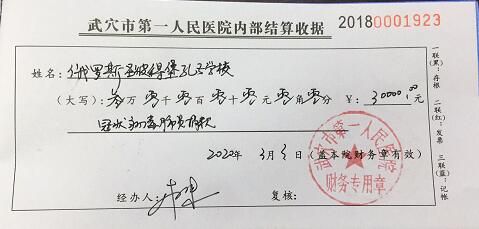 武穴市第一人民医院内部结算收据
20180001923
姓名：俄罗斯圣彼得堡孔子学校
（大写）：叁万零千零百零十零元零角零分 ￥：30000.00元
冠状病毒肺炎捐款
2020年3月3日（盖本院财务章有效）
经办人： 复核：
一联（黑）：存根 二联（红）：发票 三联（蓝）：记帐
武穴市第一人民医院
财务专用章